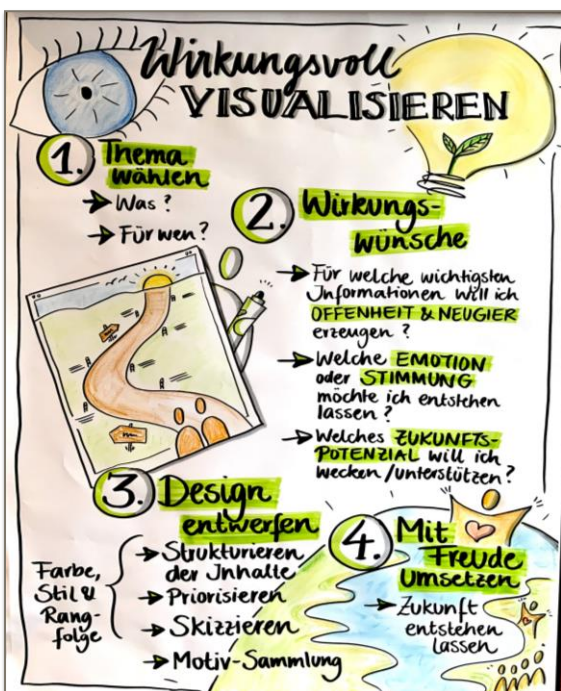 Wirkungsvoll
VISUALISIEREN
1. Thema
wählen
→ Was?
→ Für wen?
2. Wirkungs-
wünsche
→ Für welche wichtigsten
Informationen will ich
OFFENHEIT & NEUGIER
erzeugen?
→ Welche EMOTION
oder STIMMUNG
möchte ich entstehen
lassen?
→ Welches ZUKUNFTS-
POTENZIAL will ich
wecken/unterstützen?
3. Design
entwerfen
Farbe,
Stil &
Rang-
folge
→ Strukturieren
der Inhalte
→ Priorisieren
→ Skizzieren
→ Motiv-Sammlung
4. Mit
Freude
umsetzen
→ Zukunft
entstehen
lassen